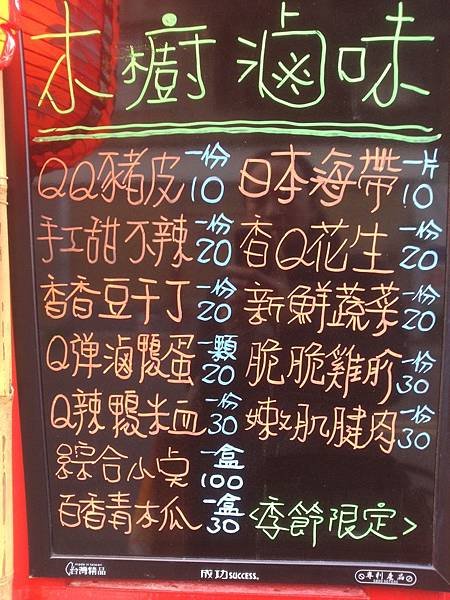 木櫥滷味
QQ豬皮 一份10
日本海帶 一片10
手工甜不辣 一份20
香Q花生 一份20
香香豆干丁 一份20
新鮮蔬菜 一份20
Q弹滷鴨蛋 一顆20
脆脆雞胗 一份30
Q辣鴨米血 一份30
嫩肌腱肉 一份30
綜合小点 一盒100
百香青木瓜 一盒30
<季節限定>
made in taiwan
台灣精品
成功 SUCCESS.
專利產品